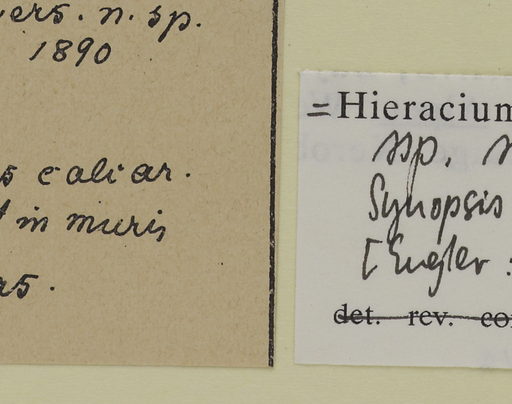 ers. n. sp.
1890
s caliar.
t in muris
as.
= Hieracium
ssp.
Synopsis
[Engler :
det. rev. co